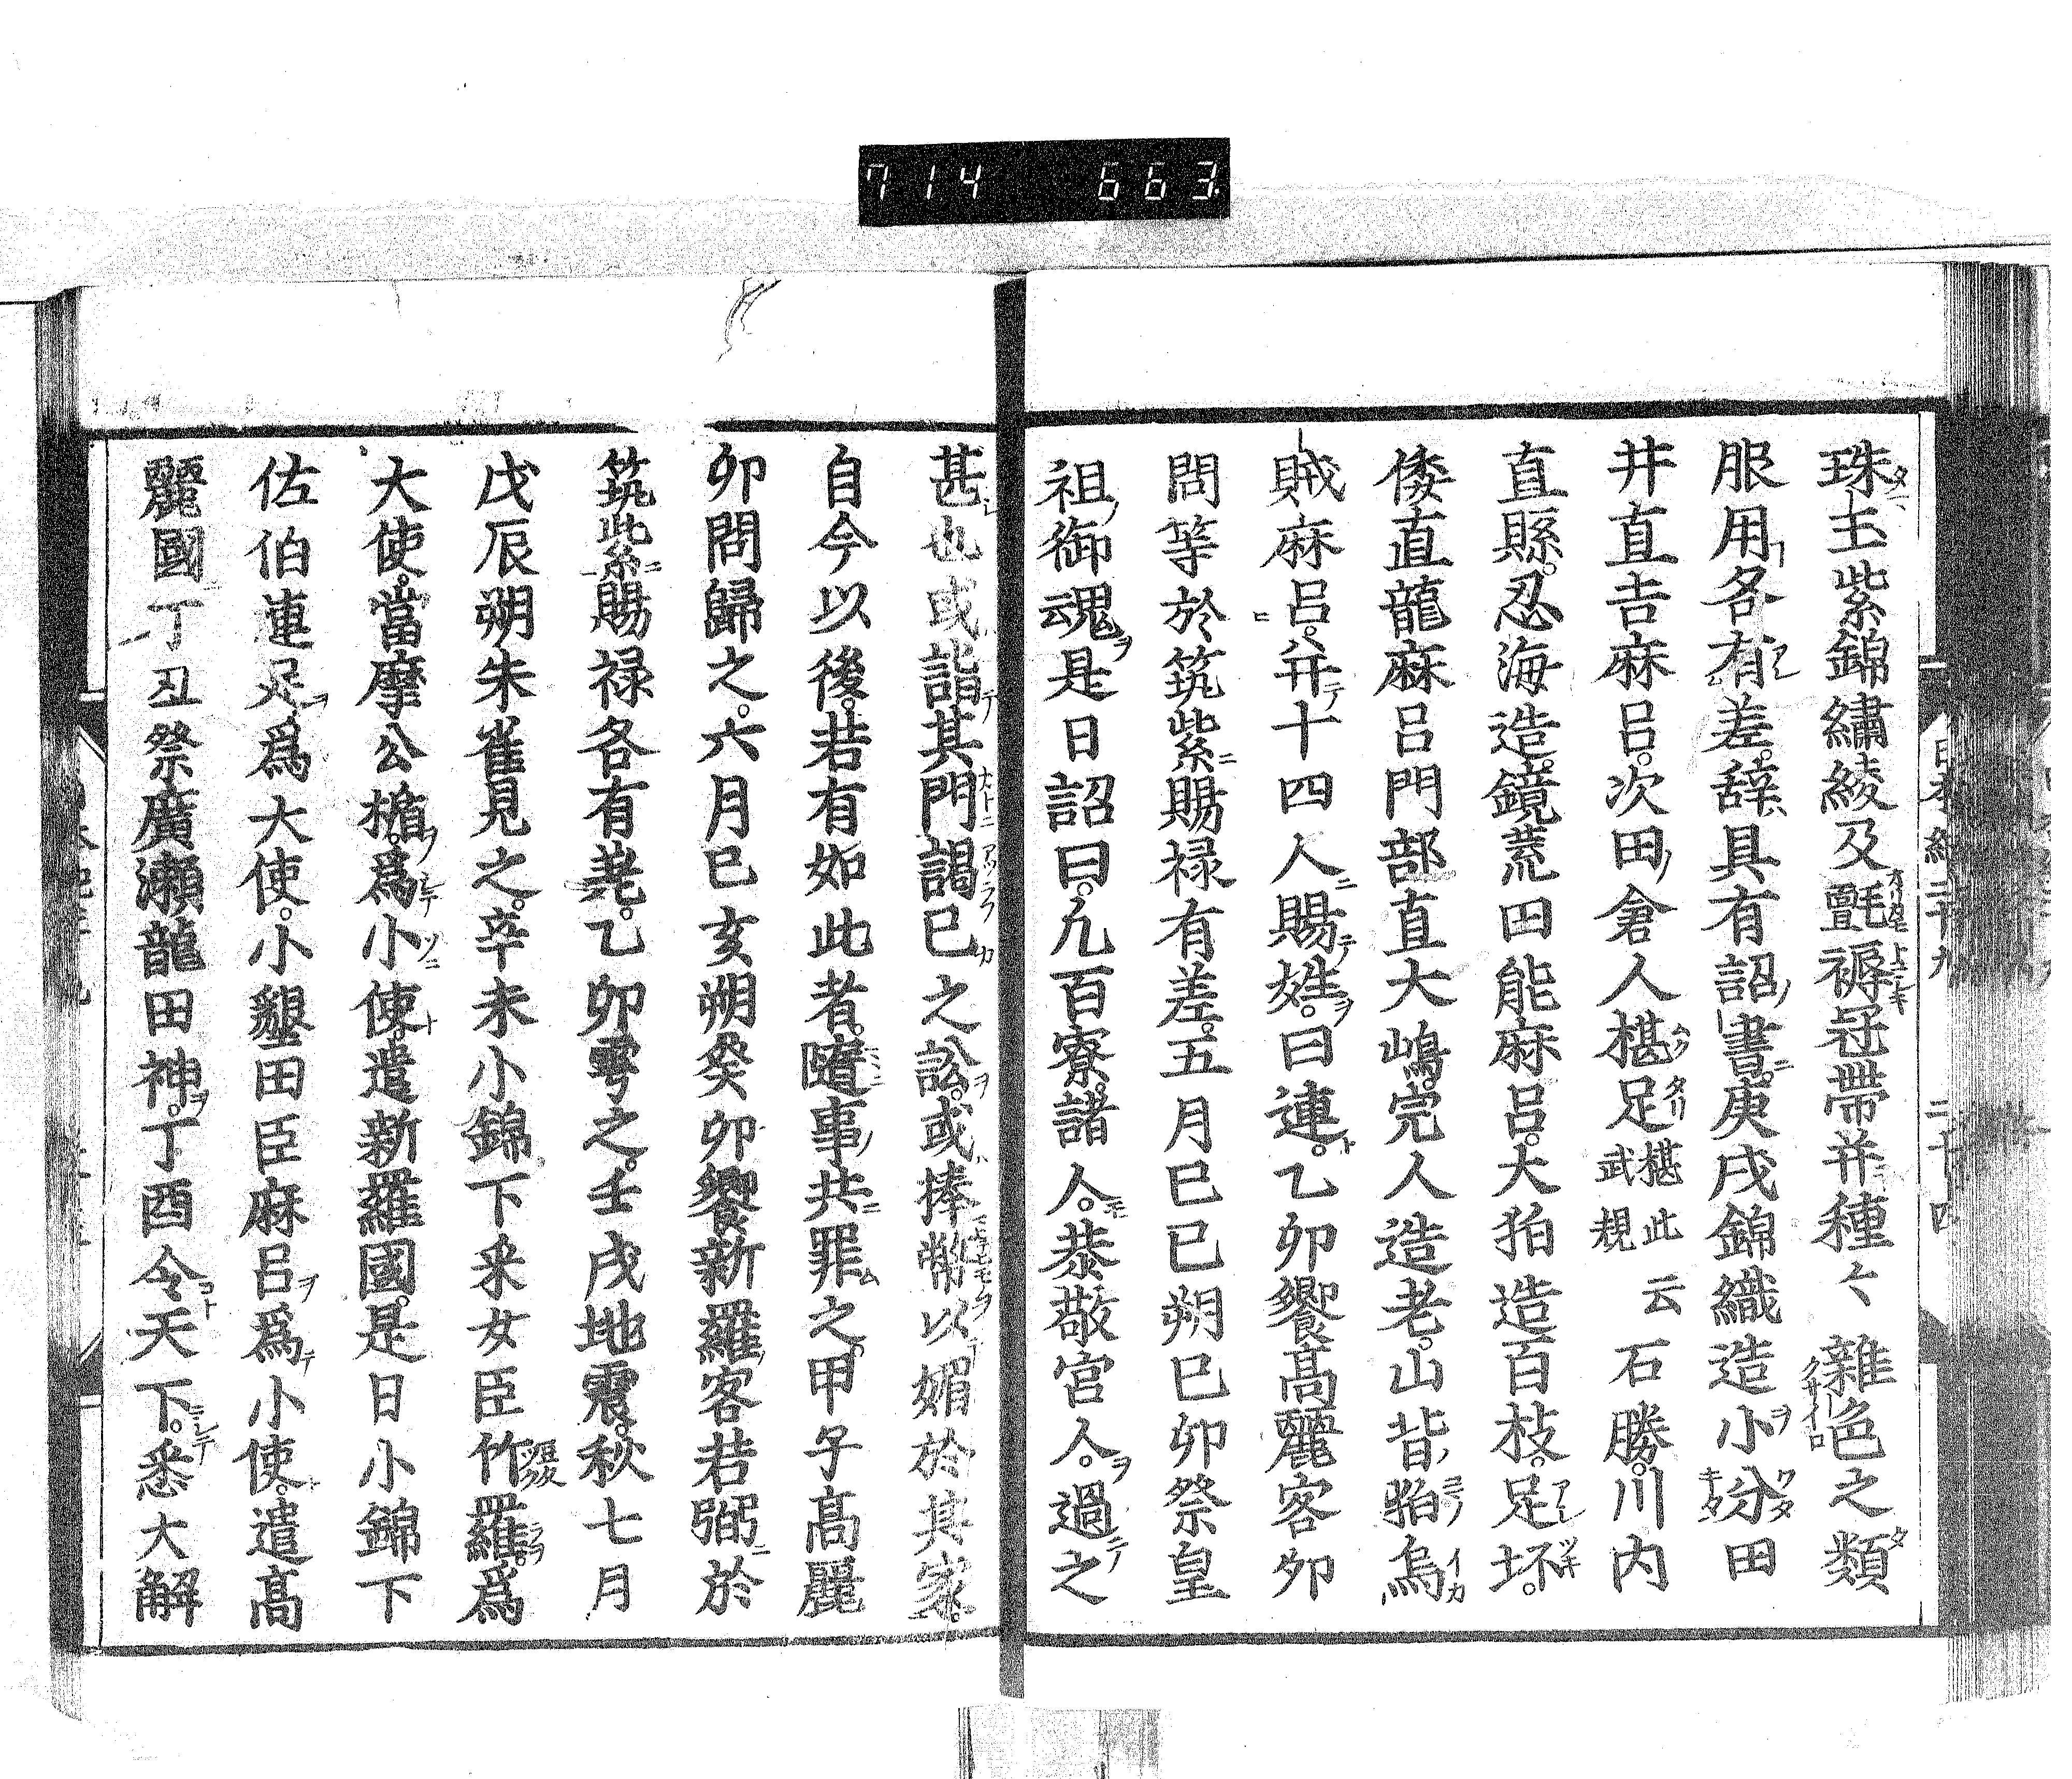 7 14 663
珠玉紫錦繡綾及氈褥冠帶并種々雜色之類
服用各有差。辞具有詔書。庚戌錦織造小分田
井直吉麻呂。次田倉人椹足椹此云武規石勝。川内
直縣。忍海造鏡。荒田能麻呂。大狛造百枝。足坏
倭直龍麻呂門部直大嶋。宍人造老。山背狛烏
賊麻呂。并十四人賜姓。曰連。乙卯饗髙麗客卯
問等於筑紫賜禄有差。五月己巳朔己卯祭皇
祖御魂是日詔曰。凡百寮。諸人。恭敬宮人。過之
甚也或詣其門謁己之訟。或捧幣以媚於其家。
自今以後。若有如此者。隨事共罪之。甲子髙麗
卯問歸之。六月己亥朔癸卯饗新羅客若弼於
筑紫賜禄各有差。乙卯雩之。壬戌地震。秋七月
戊辰朔朱雀見之。辛未小錦下采女臣竹羅。爲
大使。當摩公楯。爲小使。遣新羅國。是日小錦下
佐伯連足爲大使。小墾田臣麻呂爲小使。遣髙
麗國丁丑祭廣瀬龍田神。丁酉令天下。悉大解